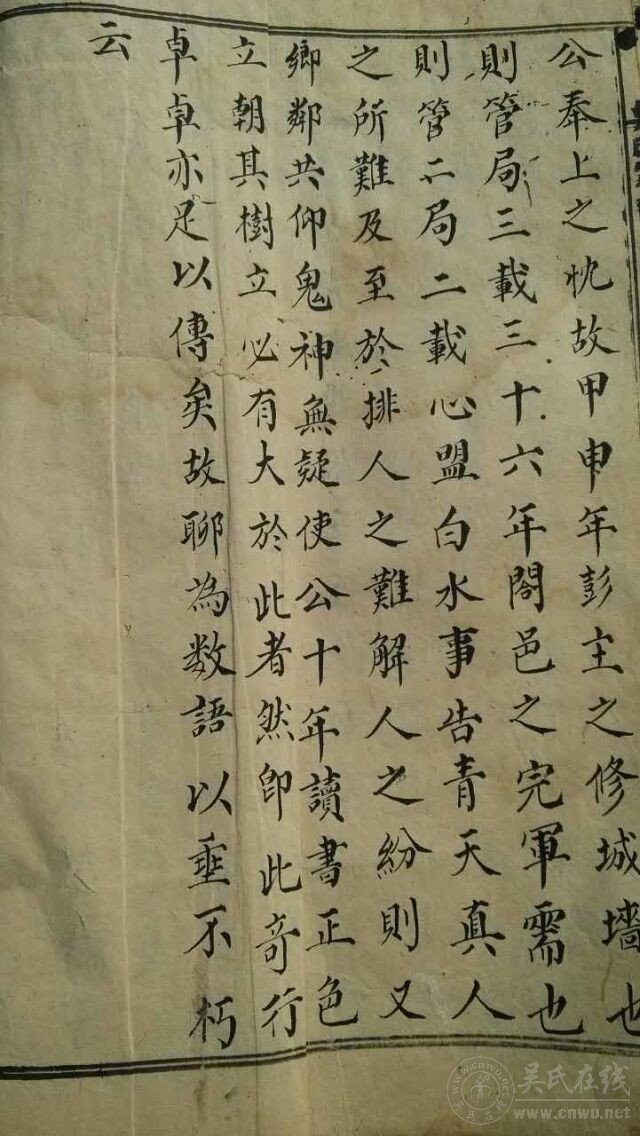 公奉上之忱故甲申年彭主之修城墻也
則管局三載三十六年閤邑之完軍需也
則管二局二載心盟白水事告青天真人
之所難及至於排人之難解人之紛則又
鄉鄰共仰鬼神無疑使公十年讀書正色
立朝其樹立必有大於此者然即此奇行
卓卓亦足以傳矣故聊為数語以垂不朽
云
吴氏在线
www.cnwu.net